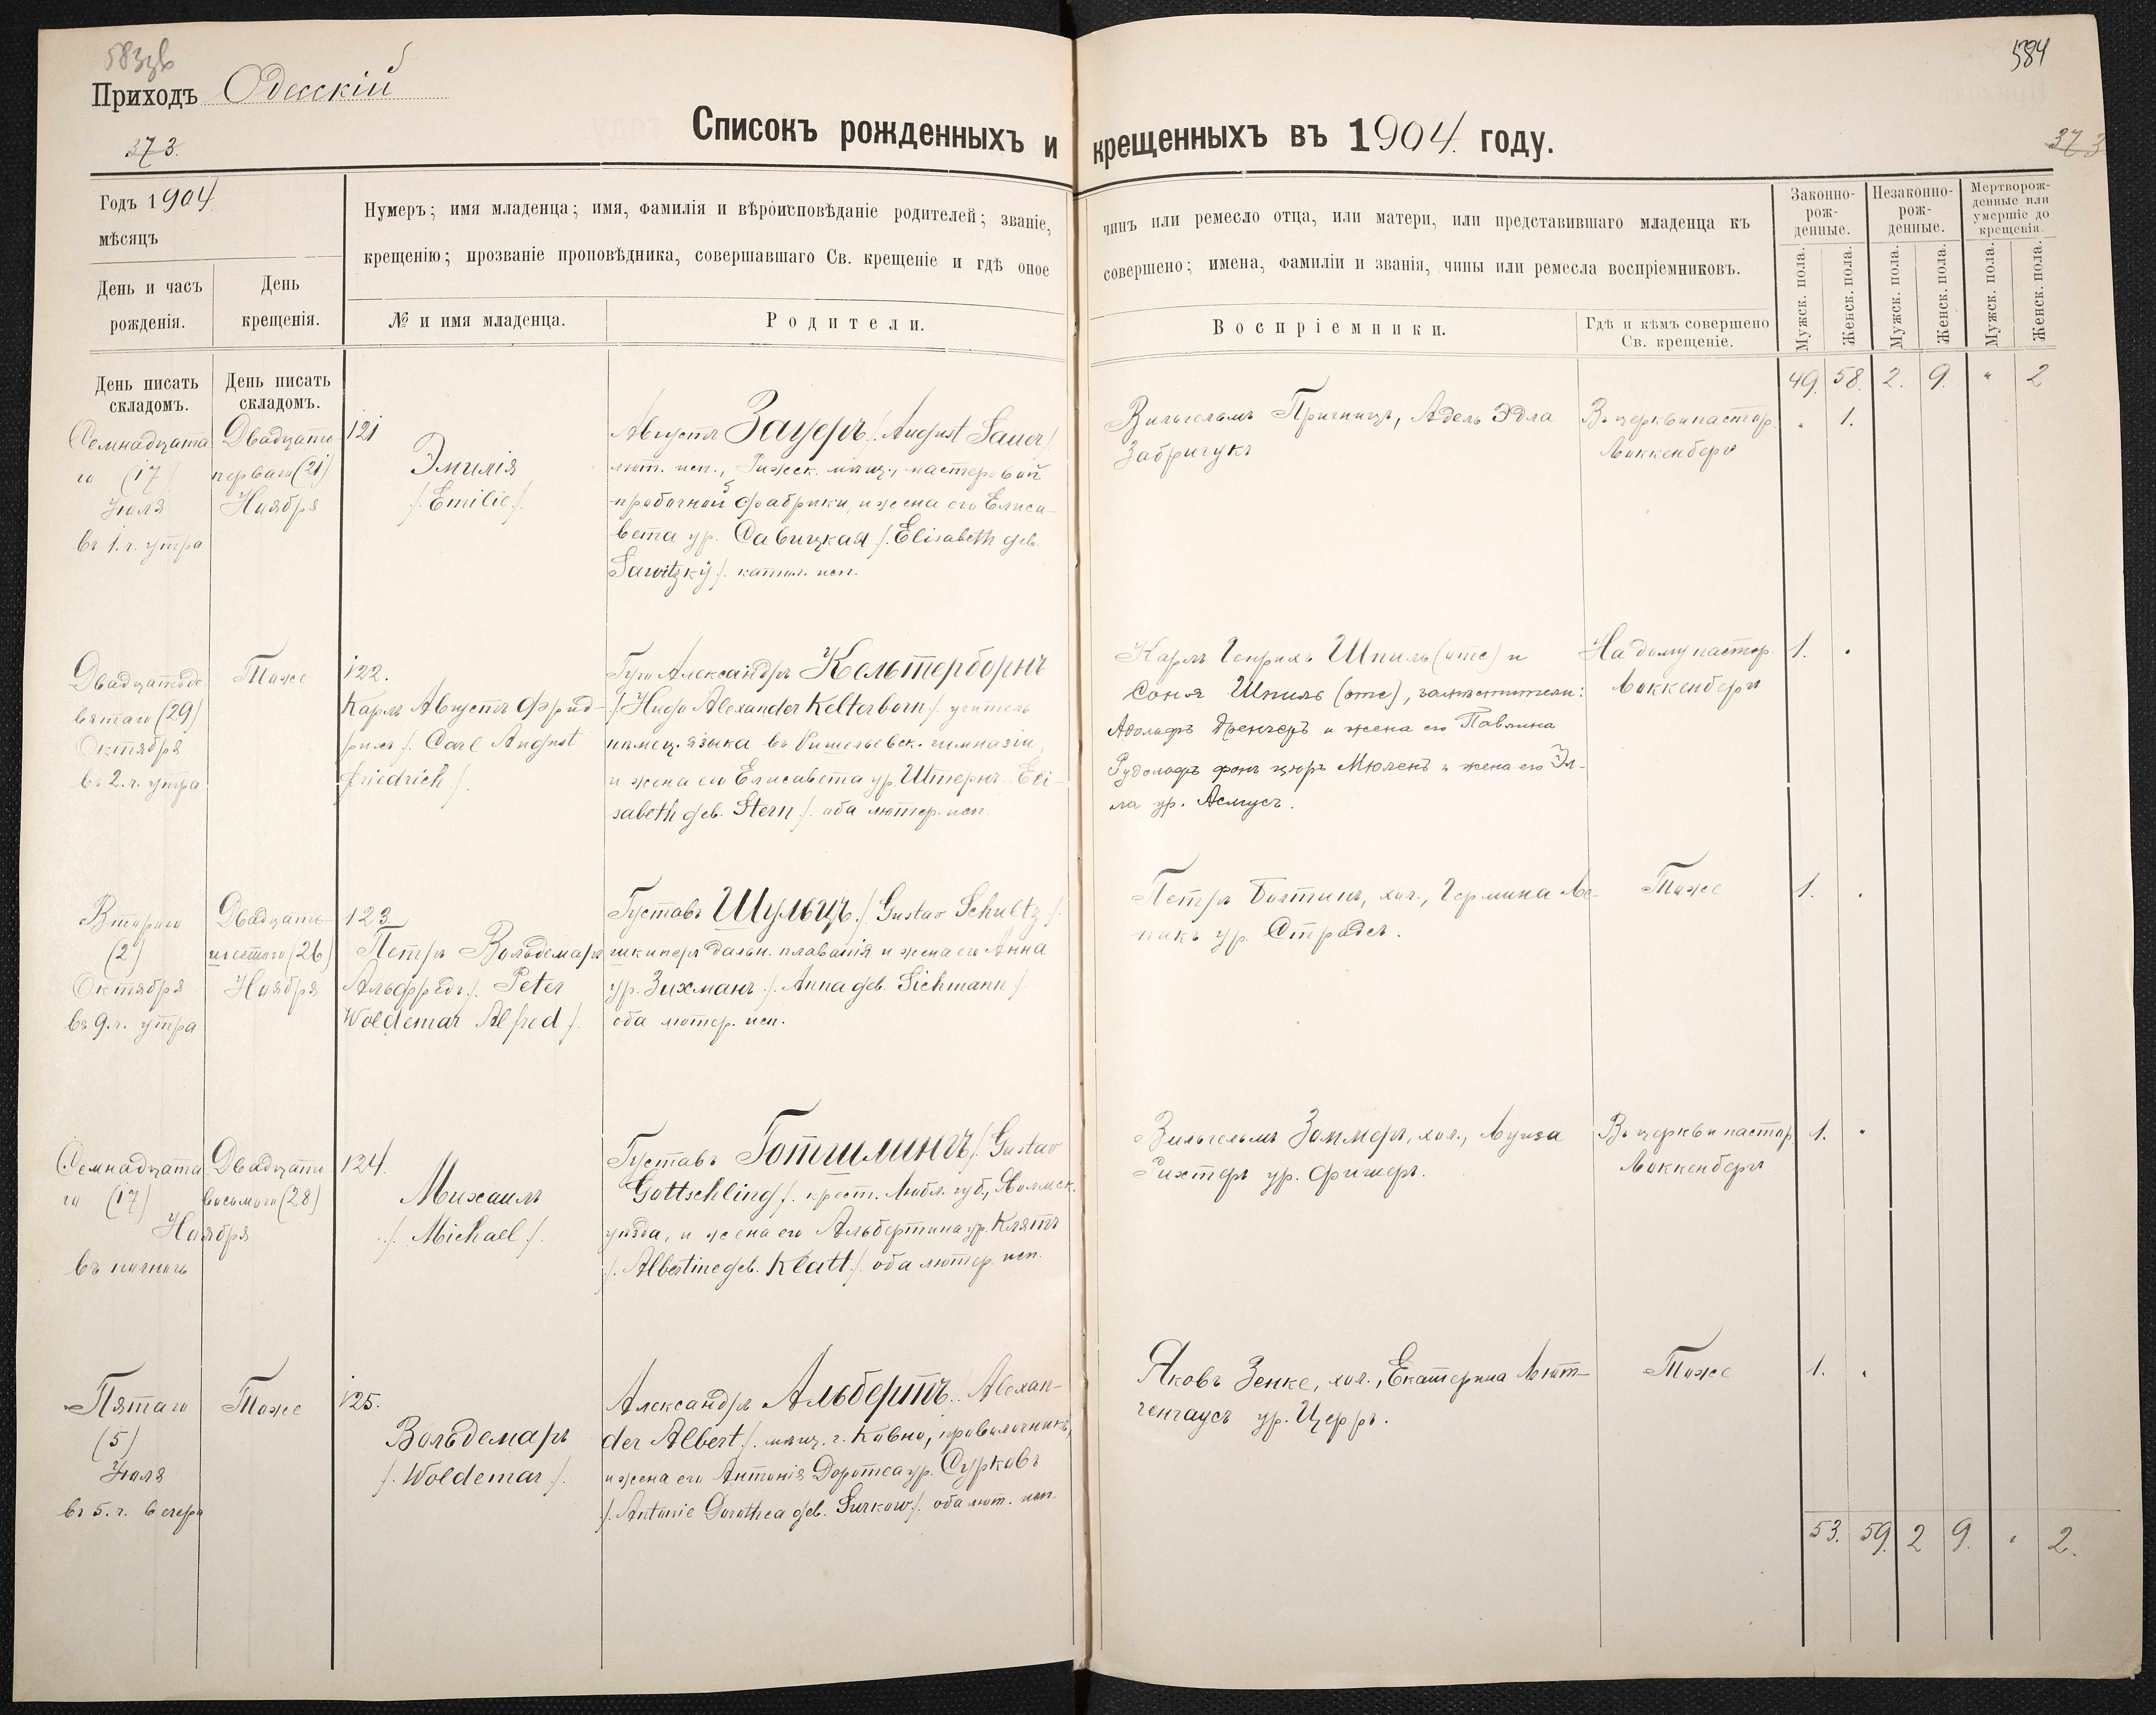 583 зв
584
Приходъ Одесскій
373.
373
Списокъ рожденныхъ и крещенныхъ въ 1904 году.
Годъ 1904
мѣсяцъ
День и часъ рожденія.
День крещенія.
Нумеръ; имя младенца; имя, фамилія и вѣроисповѣданіе родителей; званіе, чинъ или ремесло отца, или матери, или представившаго младенца къ
крещенію; прозваніе проповѣдника, совершавшаго Св. крещеніе и гдѣ оное совершено; имена, фамиліи и званія, чины или ремесла воспріемниковъ.
№ и имя младенца.
Родители.
Воспріемники.
Гдѣ и кѣмъ совершено
Св. крещеніе.
Законно-
рож-
денные.
Незаконно-
рож-
денные.
Мертворож-
денные или
умершіе до
крещенія.
Мужск. пола.
Женск. пола.
Мужск. пола.
Женск. пола.
Мужск. пола.
Женск. пола.
День писать
складомъ.
День писать
складомъ.
49. 58. 2. 9. " 2
Семнадцата
го (17)
Іюля
въ 1. ч. утра
Двадцать
перваго (21)
Ноября
121
Эмилія
/. Emilie /.
Августъ Зауеръ /. August Sauer /.
лют. исп., Рижск. мѣщ., мастеровой
пробочной фабрики, и жена его Елиса-
вета ур. Савицкая /. Elisabeth geb.
Sawitzky /. катол. исп.
Вильгельмъ, Адель Эдла
Забричукъ
Въ церкви пастор.
Локкенбергъ
. 1.
Двадцатьде
вятаго (29)
Октября
въ 2. ч. утра
Тоже
122.
Карлъ Августъ Фрид-
рихъ /. Carl August
Friedrich /.
Гуго Александръ Кельтерборнъ
/. Hugo Alexander Kelterborn /. учитель
нѣмец. языка въ Ришельевск. гимназіи,
и жена его Елисавета ур. Штернъ Eli-
sabeth geb. Stern /. оба лютер. исп.
Карлъ Генрихъ Шпиль (отс) и
Соня Шпиль (отс), заместители:
Адольфъ и жена его Павлина
Рудольфъ фонъ цюръ Мюленъ и жена его Эл-
ла ур. Асмусъ.
На дому пастор.
Локкенбергъ
1. .
Второго
(2)
Октября
въ 9. ч. утра
Двадцать
шестого (26)
Ноября
123
Петръ Вольдемаръ
Альфредъ /. Peter
Woldemar Alfred /.
Густавъ Шульцъ /. Gustav Schultz /.
шкиперъ дальн. плаванія и жена его Анна
ур. Зихманъ /. Anna geb. Sichmann /.
оба лютер. исп.
Петръ Болтинъ, хол., Гермина Ле-
никъ ур. Страдсъ.
Тоже
1. .
Семнадцата
го (17)
Ноября
въ полночь
Двадцать
восьмого (28)
124.
Михаилъ
/. Michael /.
Густавъ Готшлингъ /. Gustav
Gottschling /. крест. Любл. губ., Холмск.
уѣзда, и жена его Альбертина ур. Клятъ
/. Albertine geb. Klatt /. оба лютер. исп.
Вильгельмъ Зоммеръ, хол., Луиза
Рихтеръ ур. Фишеръ.
Въ церкви пастор.
Локкенбергъ
1. "
Пятаго
(5)
Іюля
въ 5. ч. вечера
Тоже
125.
Вольдемаръ
/. Woldemar /.
Александръ Альбертъ /. Alexan-
der Albert /. мѣщ. г. Ковно, проволочникъ,
и жена его Антонія Доротеа ур. Сурковъ
/. Antonie Dorothea geb. Surkow /. оба лют. исп.
Яковъ Зенке, хол., Екатерина Лют-
генгаусъ ур. Церръ.
Тоже
1. .
53. 59. 2 9. " 2.